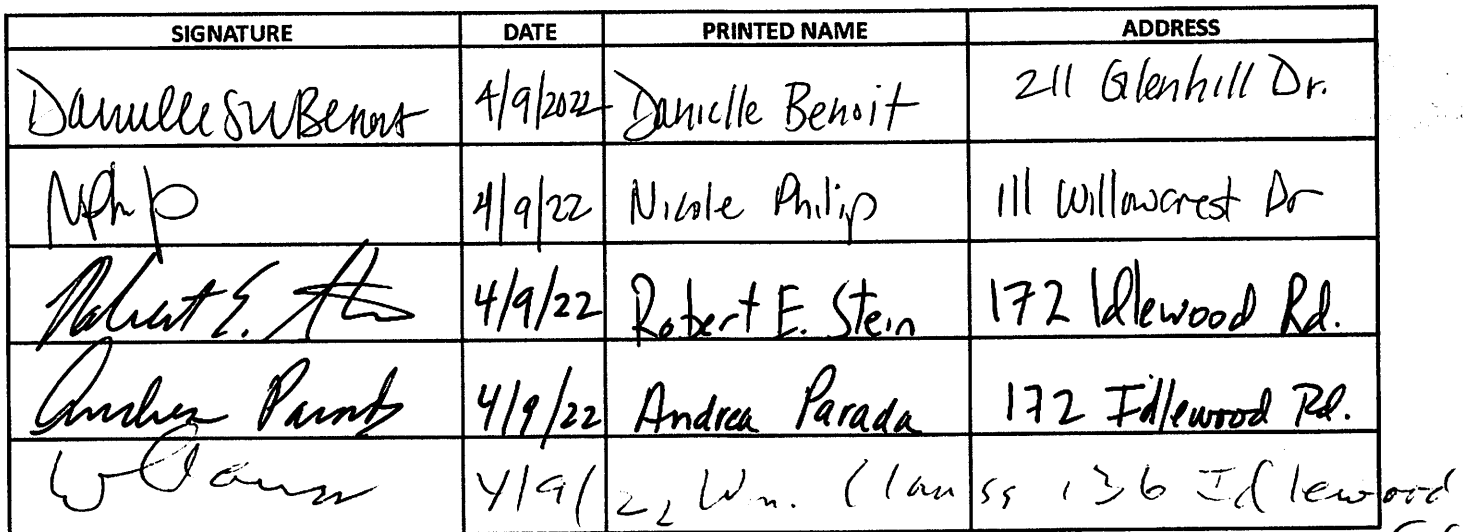 SIGNATURE DATE PRINTED NAME ADDRESS
Danielle SW Benoit 4/9/2022 Danielle Benoit 211 Glenhill Dr.
4/9/22 Nicole Philip 111 Willowcrest Dr
Robert E. Stein 4/9/22 Robert E. Stein 172 Idlewood Rd.
Andrea Parada 4/9/22 Andrea Parada 172 Idlewood Rd.
4/9/22 Wm. Clauss 136 Idlewood